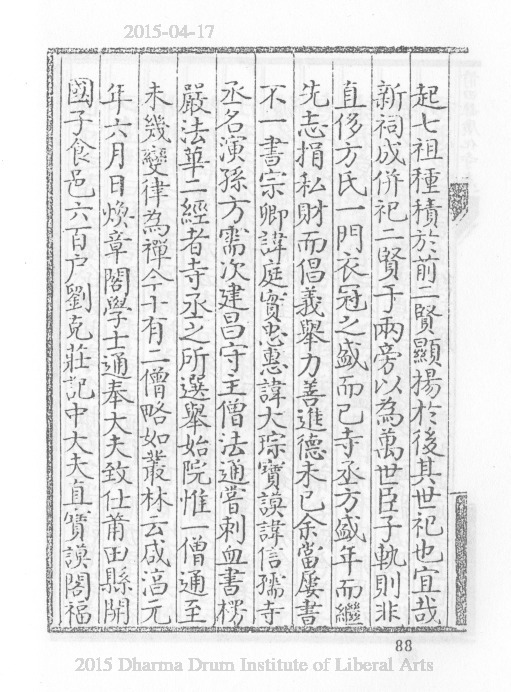 2015-04-17
起七祖種積於前二賢顯揚於後其世祀也宜哉
新祠成併祀二賢于兩旁以為萬世臣子軌則非
直侈方氏一門衣冠之盛而已寺丞方盛年而繼
先志捐私財而倡義舉力善進德未已余當屢書
不一書宗卿諱庭實忠惠諱大琮寶謨諱信孺寺
丞名演孫方需次建昌守主僧法通嘗刺血書楞
嚴法華二經者寺丞之所選舉始院惟一僧通至
未幾變律為禪今十有二僧略如叢林云咸淳元
年六月日煥章閣學士通奉大夫致仕莆田縣開
國子食邑六百户劉克莊記中大夫直寶謨閣福
88
2015 Dharma Drum Institute of Liberal Arts